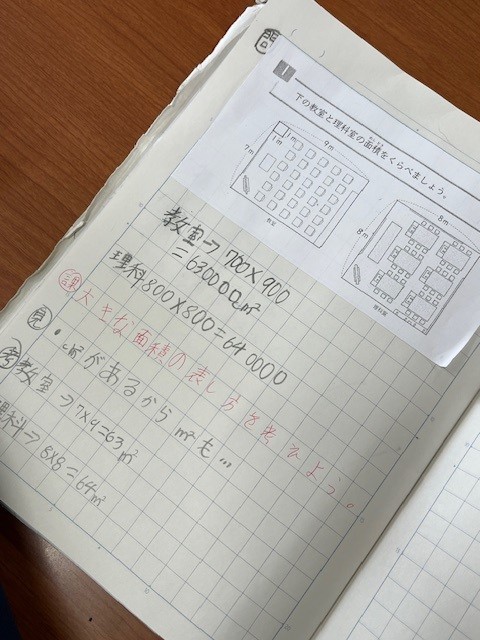 問
1
下の教室と理科室の面積をくらべましょう。
1m
1m
9m
7m
教室
8m
8m
理科室
教室→700×900
=630000c㎡
理科800×800=640000
課 大きな面積の表し方を考えよう。
見 ・c㎡があるから㎡も…
考 教室→7×9=63㎡
理科→8×8=64㎡